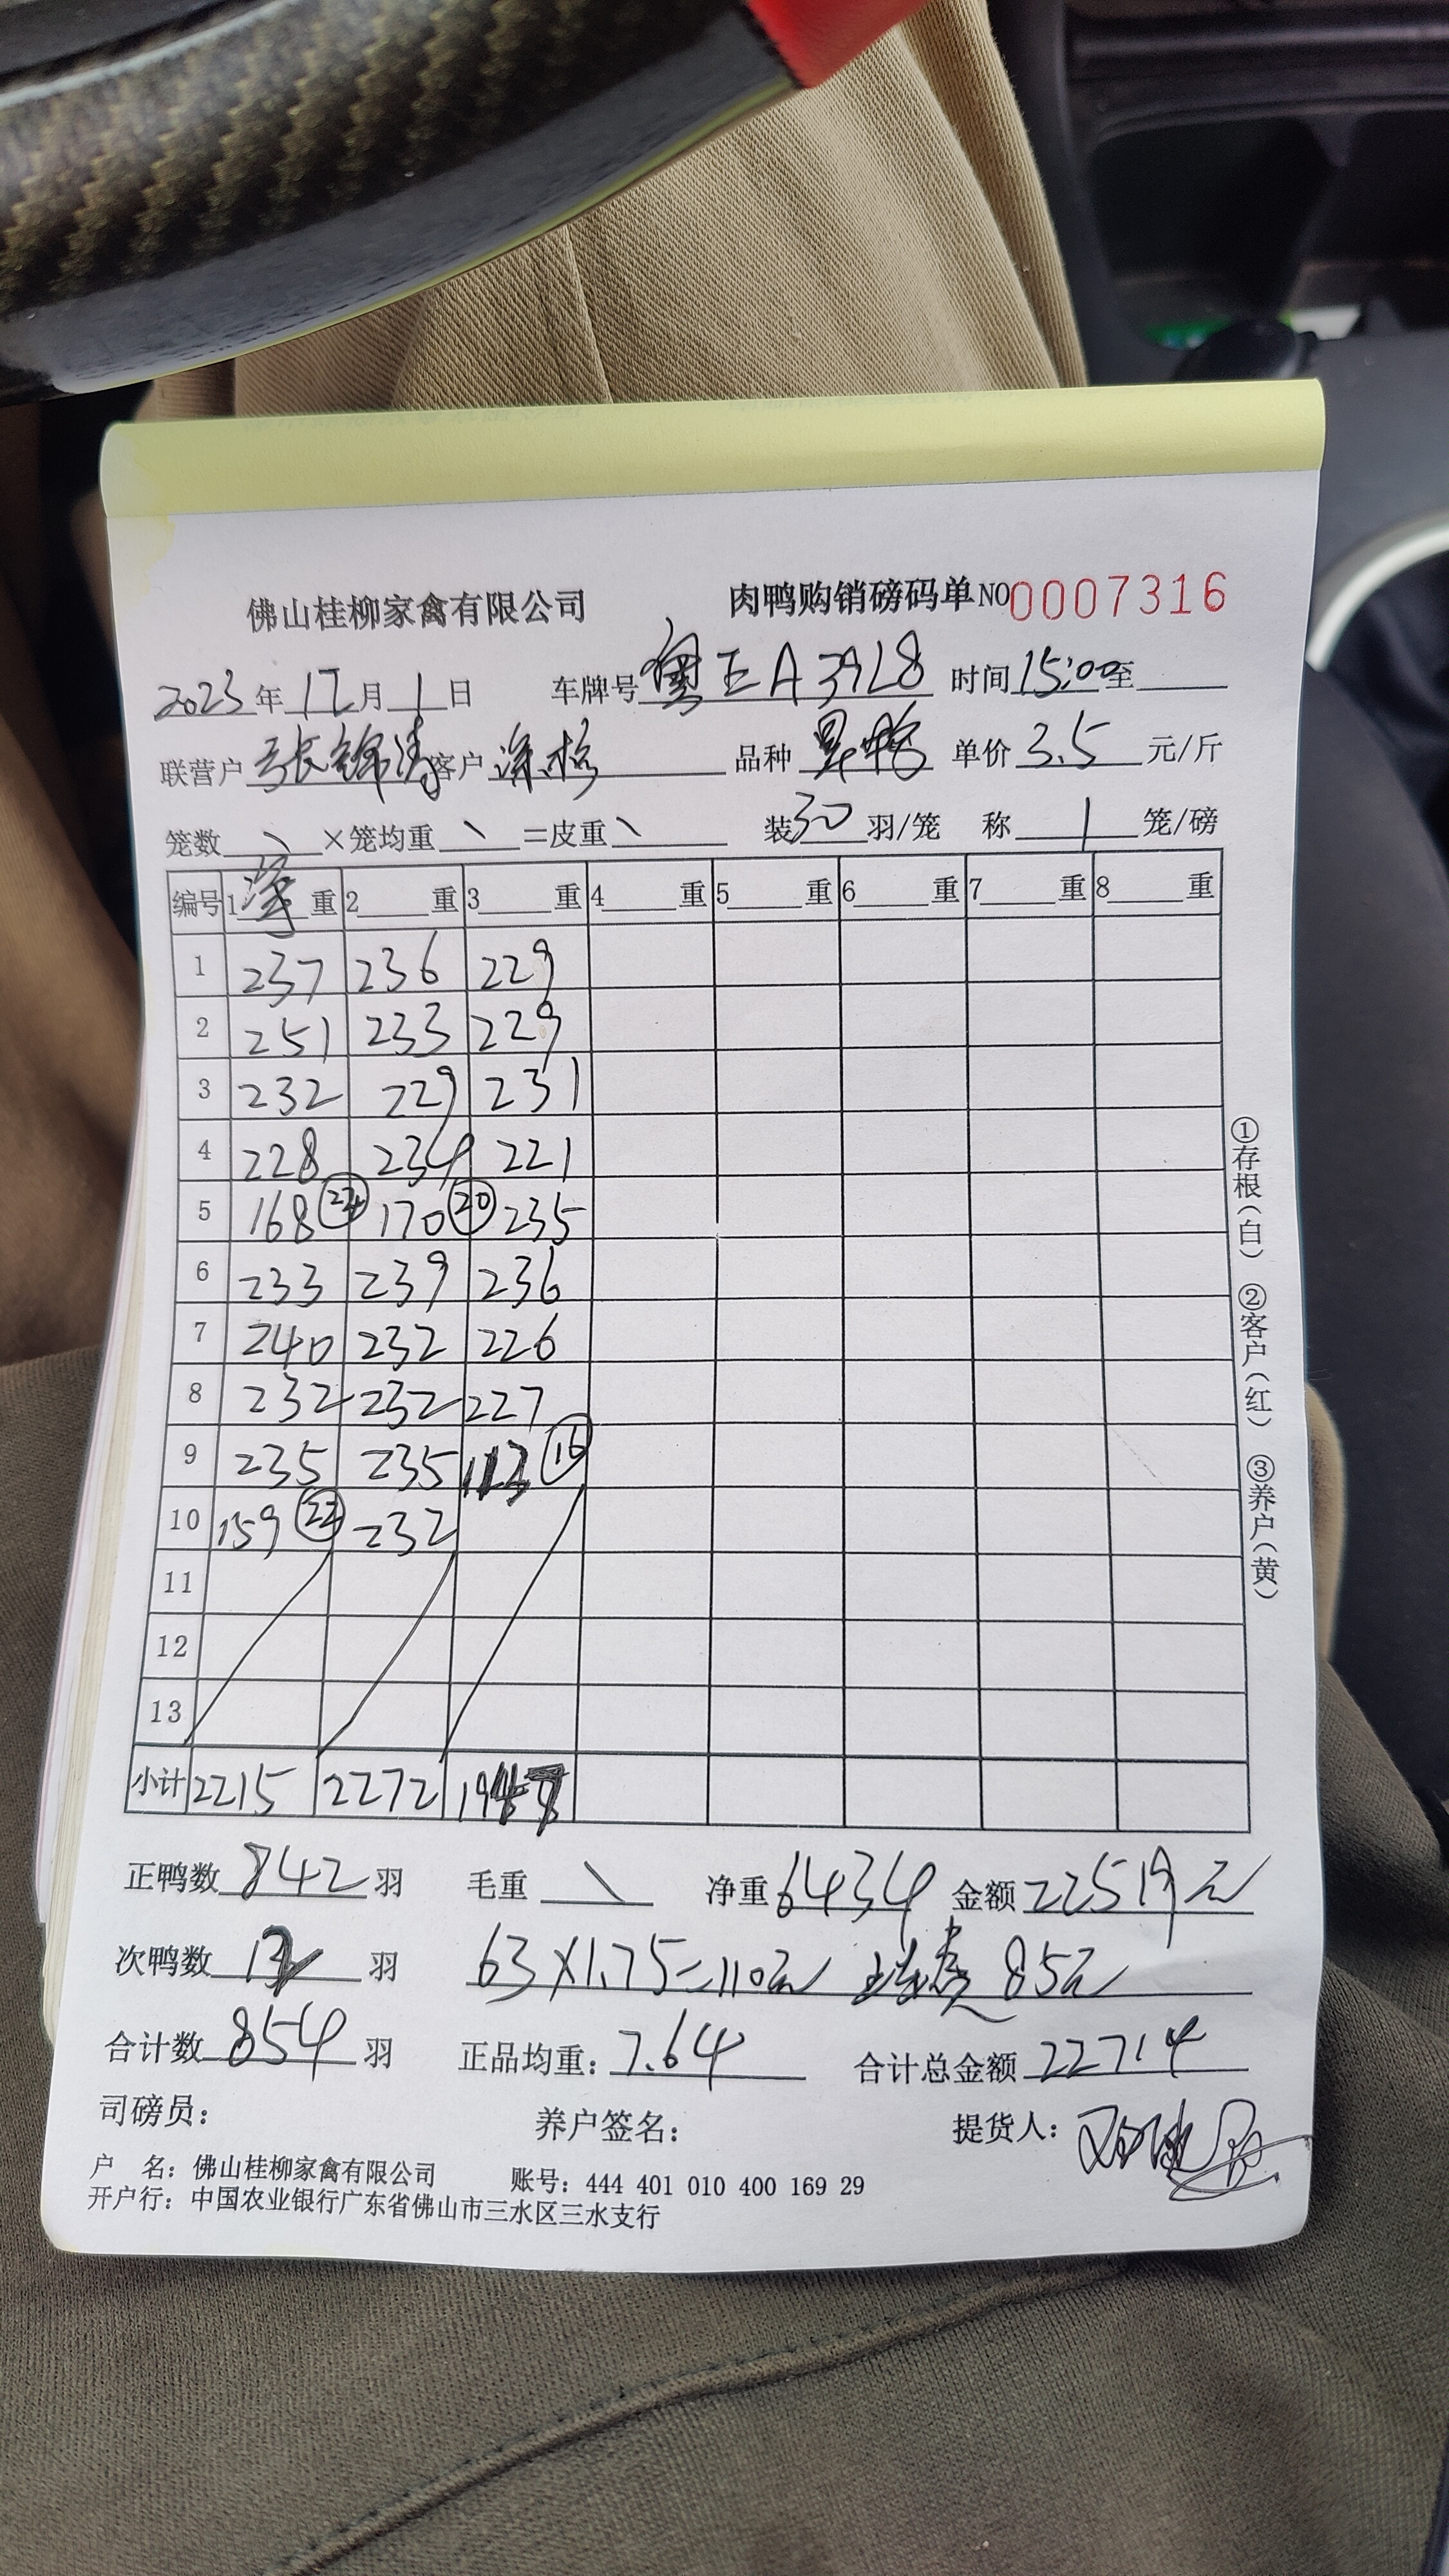 佛山桂柳家禽有限公司 肉鸭购销磅码单 NO 0007316
2023年12月1日 车牌号粤EA3928 时间15:00至
联营户张锦涛 客户深格 品种 单价3.5元/斤
笼数\×笼均重\=皮重\ 装30羽/笼 称1笼/磅
编号 1净重 2重 3重 4重 5重 6重 7重 8重
1 237 236 229
2 251 233 229
3 232 229 231
4 228 234 221
5 168 ㉔ 170 ⑳ 235
6 233 239 236
7 240 232 226
8 232 232 227
9 235 235 113 ⑯
10 159 ㉒ 232
11
12
13
小计 2215 2272 1947
正鸭数842羽 毛重\ 净重6434 金额22519元
次鸭数12羽 63×1.75=110元 85元
合计数854羽 正品均重:7.64 合计总金额22714
司磅员: 养户签名: 提货人:
户 名: 佛山桂柳家禽有限公司 账号: 444 401 010 400 169 29
开户行: 中国农业银行广东省佛山市三水区三水支行
①存根(白) ②客户(红) ③养户(黄)